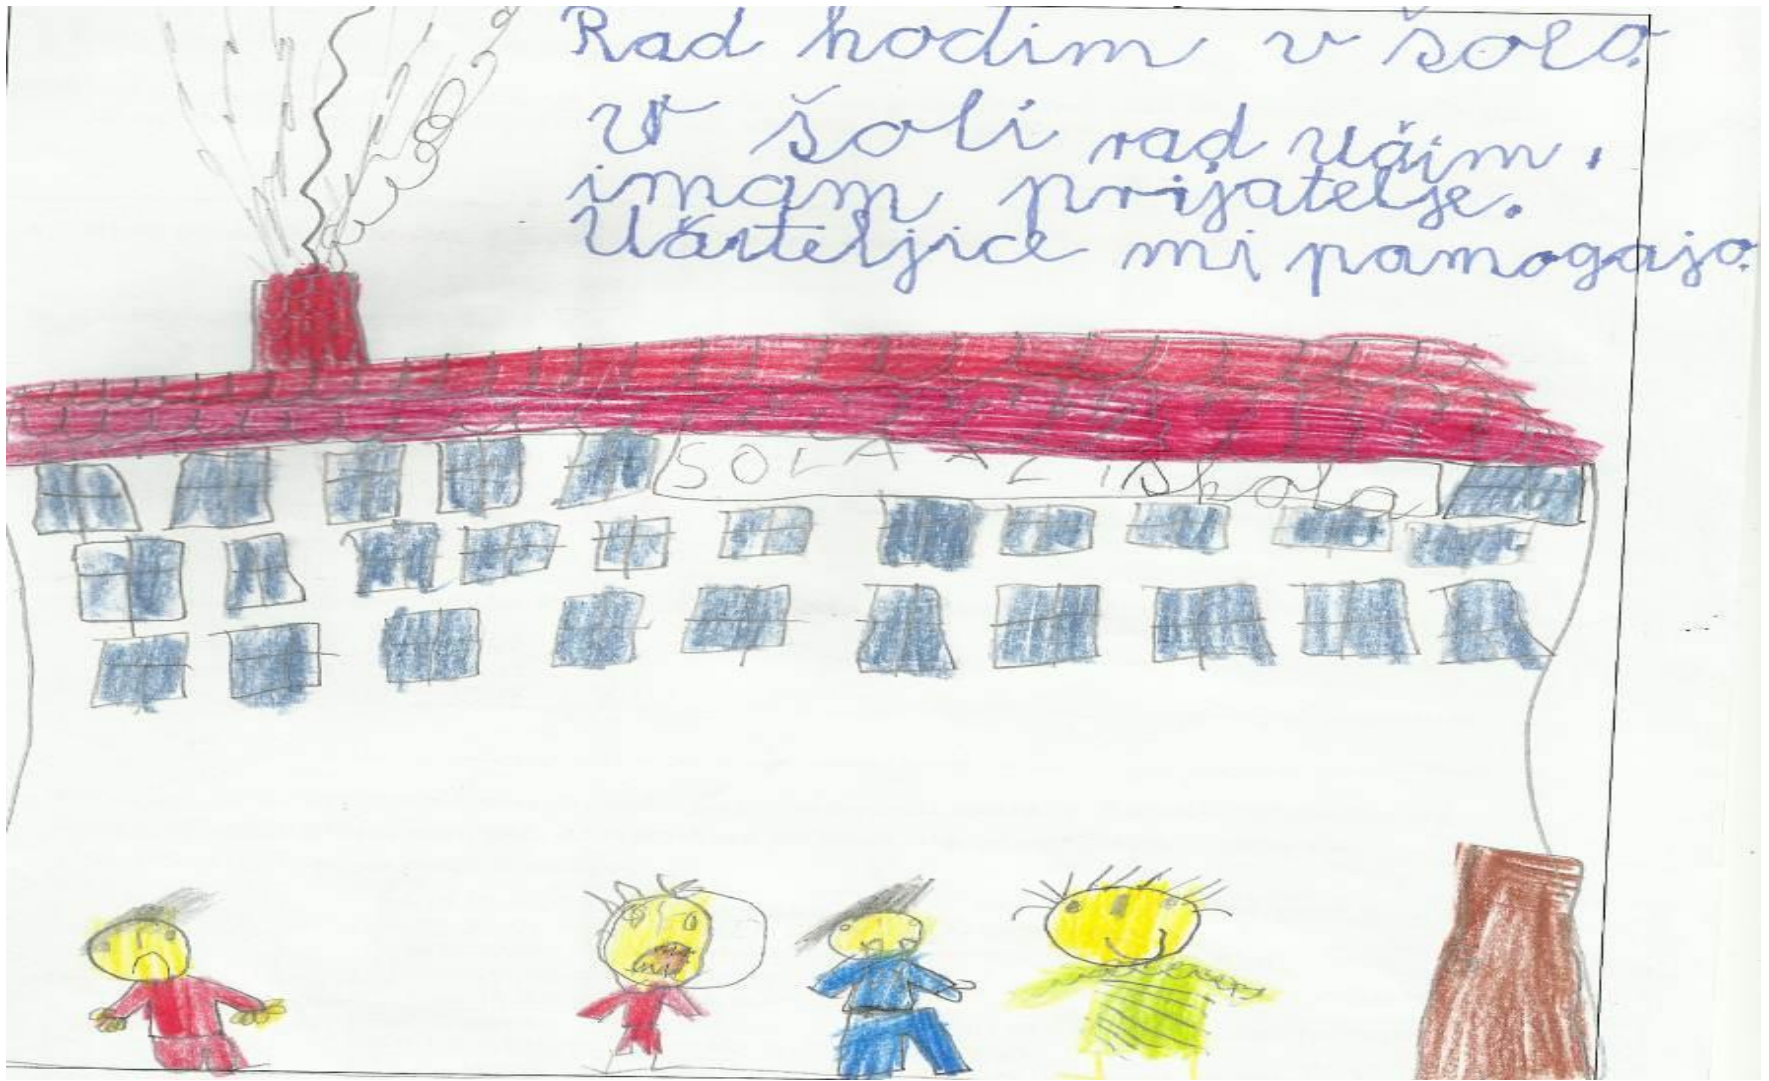 Rad hodim v šolo.
V šoli rad učim,
imam prijatelje.
Učiteljice mi pomagajo.
ŠOLA AZ iskola